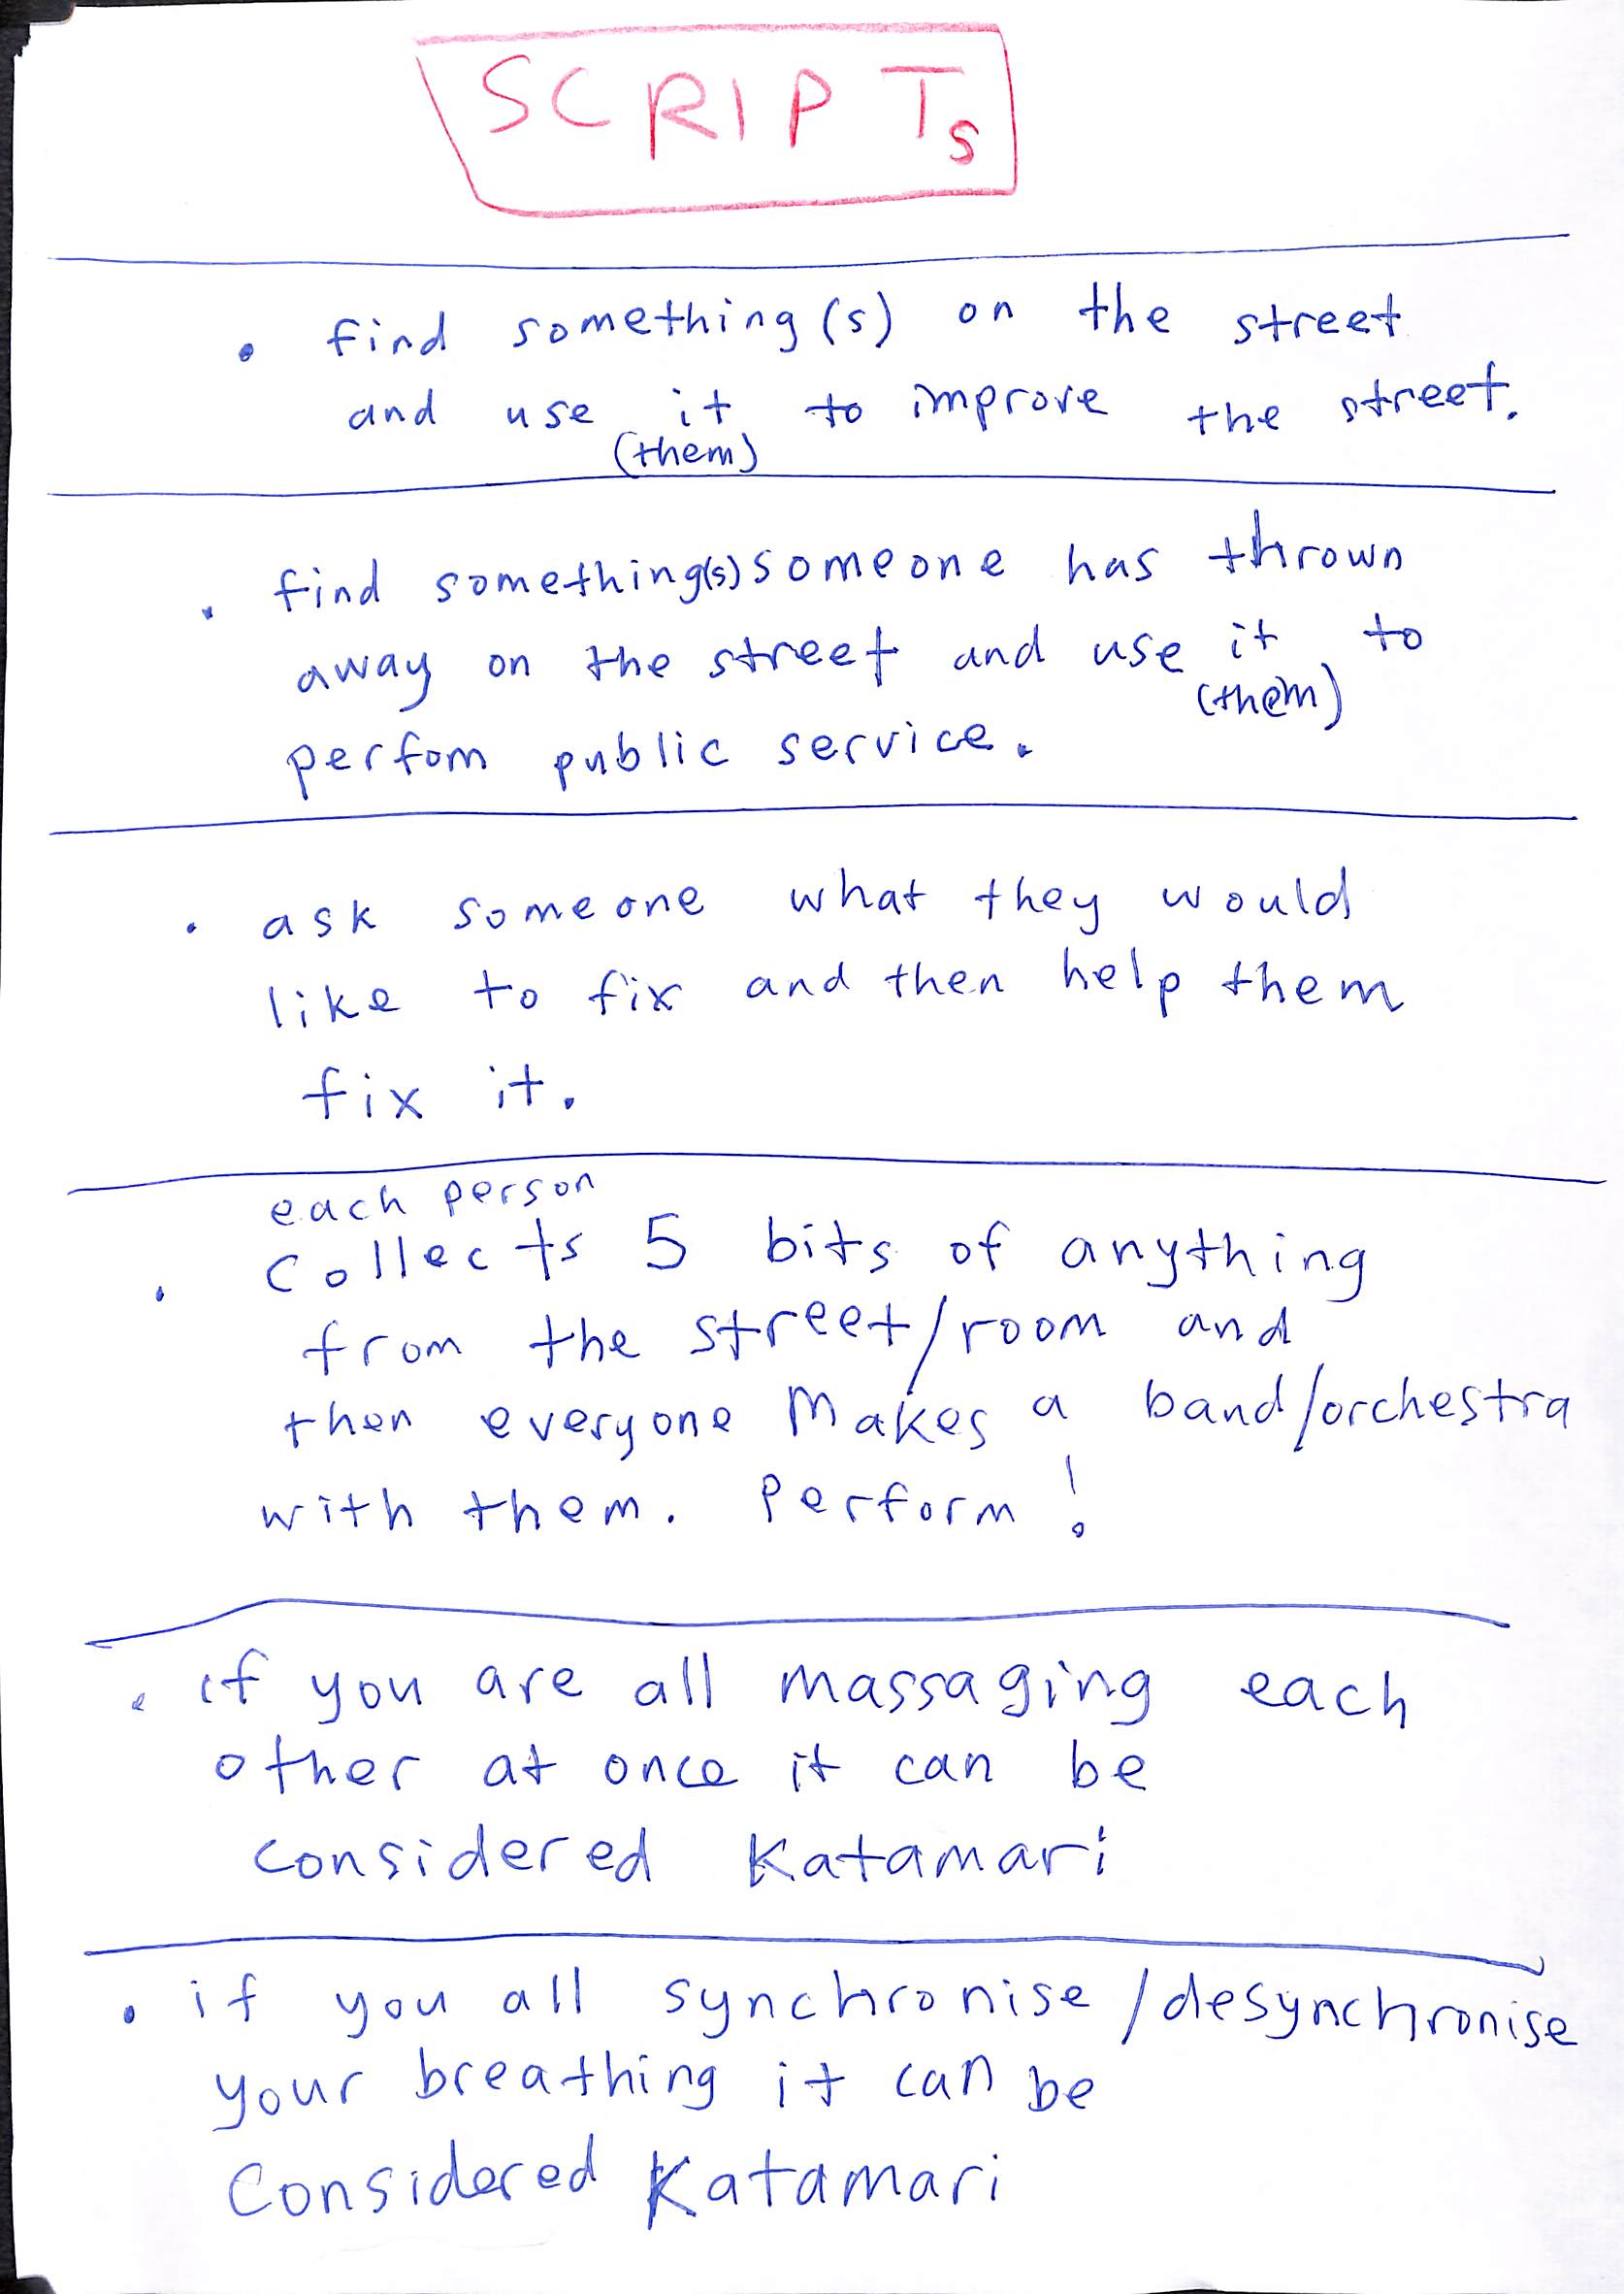 SCRIPTs
• find something(s) on the street
and use it to improve the street.
(them)
• find something(s) someone has thrown
away on the street and use it to
(them)
perfom public service.
• ask someone what they would
like to fix and then help them
fix it.
each person
• collects 5 bits of anything
from the street/room and
then everyone makes a band/orchestra
with them. Perform!
• if you are all massaging each
other at once it can be
considered Katamari
• if you all synchronise/desynchronise
your breathing it can be
Considered Katamari